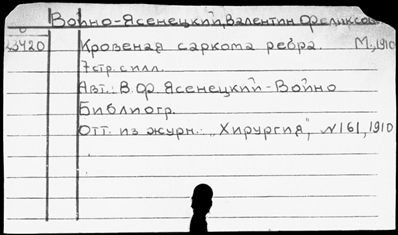 Войно-Ясенецкий, Валентин Феликсов
3420 Кровеная саркома ребра. М., 1910
7 стр. с илл.
Авт.: В.Ф. Ясенецкий-Войно
Библиогр.
Отт. из журн.: "Хирургия", N161, 1910